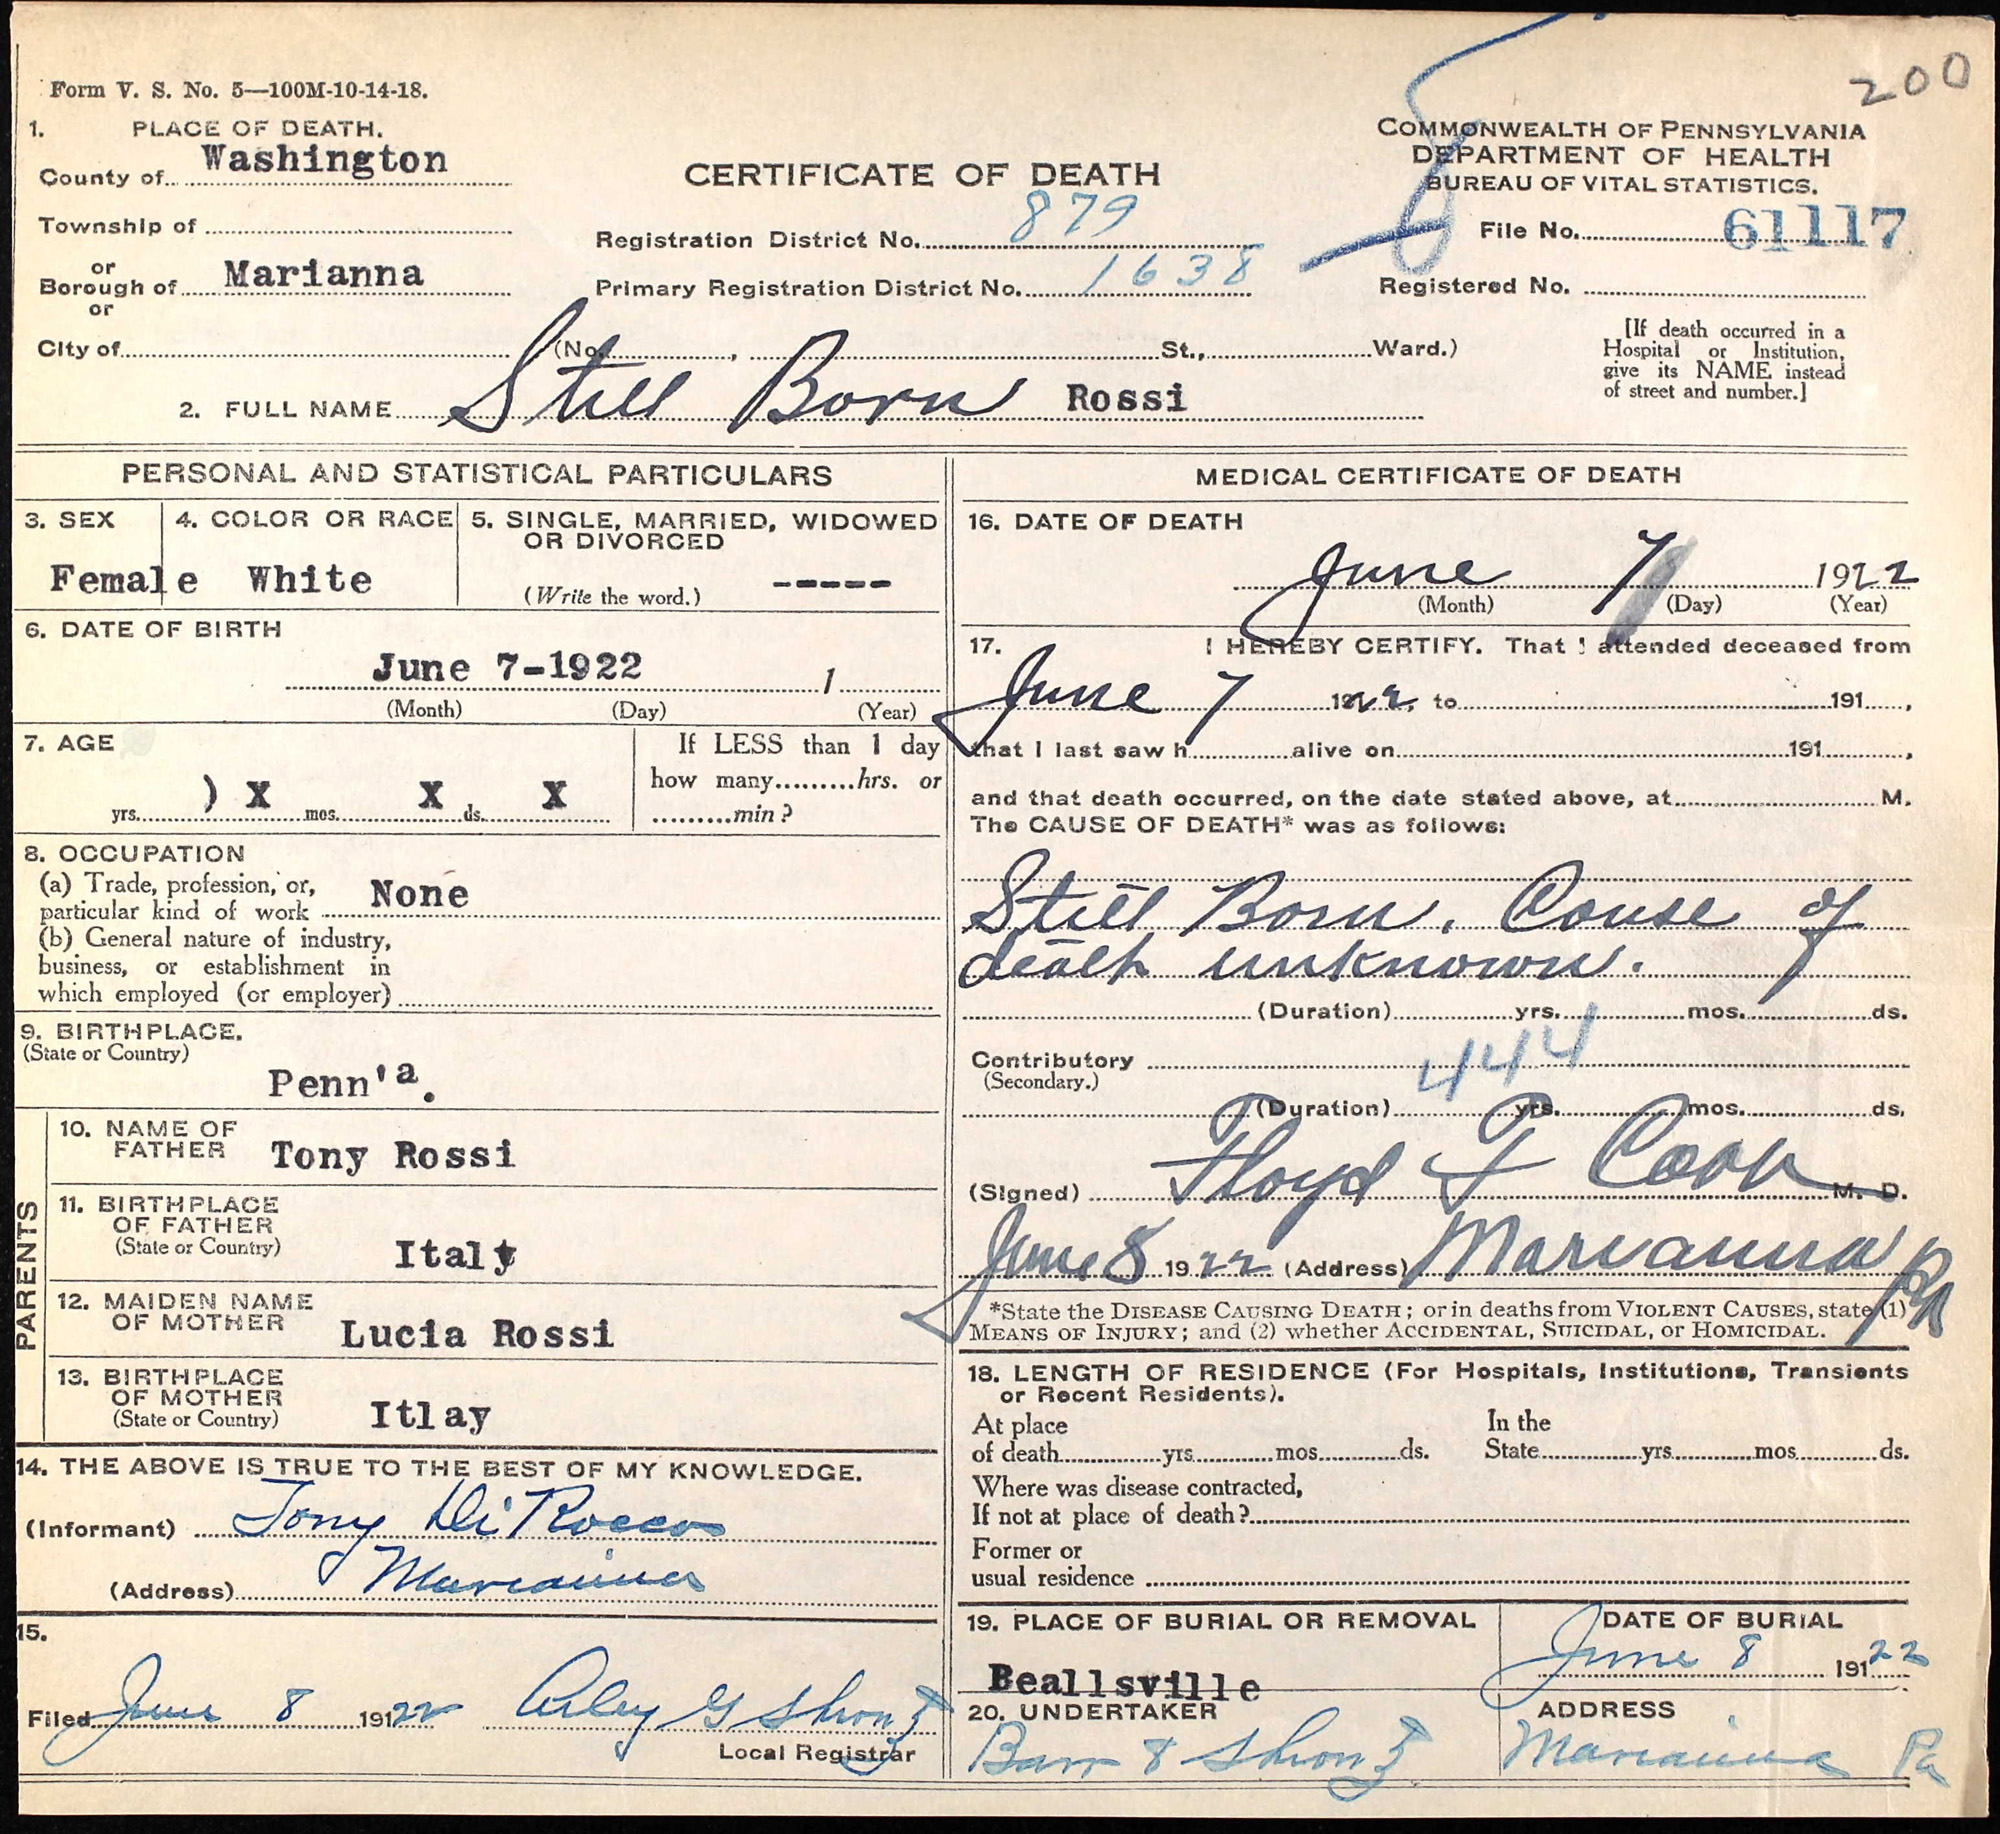 200
Form V. S. No. 5—100M-10-14-18.
1. PLACE OF DEATH.
County of Washington
Township of
or
Borough of Marianna
or
City of
CERTIFICATE OF DEATH
Registration District No. 879
Primary Registration District No. 1638
(No. , St., Ward.)
COMMONWEALTH OF PENNSYLVANIA
DEPARTMENT OF HEALTH
BUREAU OF VITAL STATISTICS.
File No. 61117
Registered No.
[If death occurred in a
Hospital or Institution,
give its NAME instead
of street and number.]
2. FULL NAME Still Born Rossi
PERSONAL AND STATISTICAL PARTICULARS
3. SEX
Female
4. COLOR OR RACE
White
5. SINGLE, MARRIED, WIDOWED
OR DIVORCED
(Write the word.) -----
6. DATE OF BIRTH
June 7-1922 1
(Month) (Day) (Year)
7. AGE
yrs. ) X mos. X ds. X
If LESS than 1 day
how many hrs. or
min?
8. OCCUPATION
(a) Trade, profession, or,
particular kind of work None
(b) General nature of industry,
business, or establishment in
which employed (or employer)
9. BIRTHPLACE.
(State or Country)
Penn'a.
PARENTS
10. NAME OF
FATHER Tony Rossi
11. BIRTHPLACE
OF FATHER
(State or Country) Italy
12. MAIDEN NAME
OF MOTHER Lucia Rossi
13. BIRTHPLACE
OF MOTHER
(State or Country) Itlay
14. THE ABOVE IS TRUE TO THE BEST OF MY KNOWLEDGE.
(Informant) Tony Di Rocco
(Address) Marianna
15.
Filed June 8 1922 Arley G Shontz
Local Registrar
MEDICAL CERTIFICATE OF DEATH
16. DATE OF DEATH
June 7 1922
(Month) (Day) (Year)
17. I HEREBY CERTIFY. That I attended deceased from
June 7 1922, to 191 ,
that I last saw h alive on 191 ,
and that death occurred, on the date stated above, at M.
The CAUSE OF DEATH* was as follows:
Still Born. Cause of
death unknown.
(Duration) yrs. mos. ds.
Contributory 444
(Secondary.)
(Duration) yrs. mos. ds.
(Signed) Floyd F Cook M. D.
June 8 1922 (Address) Marianna Pa
*State the DISEASE CAUSING DEATH; or in deaths from VIOLENT CAUSES, state (1)
MEANS OF INJURY; and (2) whether ACCIDENTAL, SUICIDAL, or HOMICIDAL.
18. LENGTH OF RESIDENCE (For Hospitals, Institutions, Transients
or Recent Residents).
At place
of death yrs. mos. ds.
In the
State yrs. mos. ds.
Where was disease contracted,
If not at place of death?
Former or
usual residence
19. PLACE OF BURIAL OR REMOVAL
Beallsville
DATE OF BURIAL
June 8 19122
20. UNDERTAKER
Barr & Shontz
ADDRESS
Marianna Pa